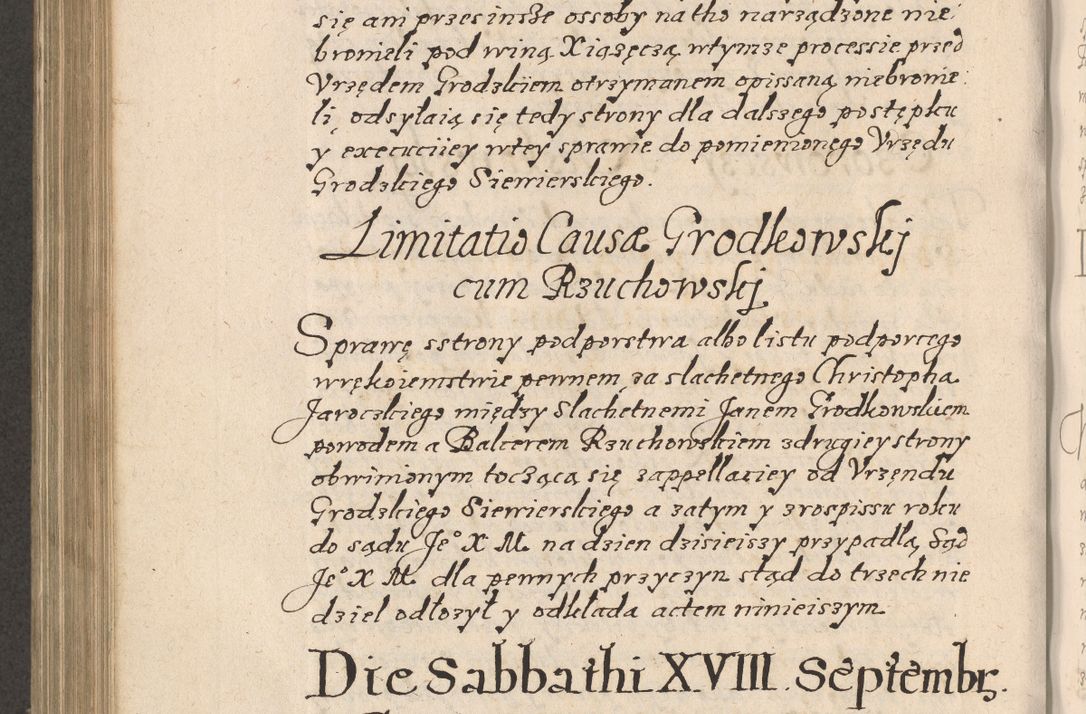 się ani przes insze ossoby na tho narządzone nie
bronieli pod winą Xiązęczą wtymze processie przed
Vrzędem Grodzkiem otrzymanem opissaną niebronie
li, odsyłaią się tedy strony dla dalszego postępku
y executiiey wtey sprawie do pomienionego Vrzędu
Grodzkiego Siewierskiego.
Limitatio Causæ Grodkowskj
cum Rzuchowskj
Sprawę sstrony podporstwa albo listu podporcego
wrękoiemstwie pewnem za slachetnego Christopha
Jaroczkiego między Slachetnemi Janem Grodkowskiem
powodem a Balcerem Rzuchowskiem zdrugiey strony
obwinionym toczącą się zappellaciey od Vrzęndu
Grodzkiego Siewierskiego a zatym y zrospissu roku
do sądu Je° X M. na dzien dzisieiszy przypadłą, Sąd
Je° X M. dla pewnych przyczyn stąd do trzech nie
dziel odłozył y odkłada actem ninieiszym
Die Sabbathi XVIII. Septembr.